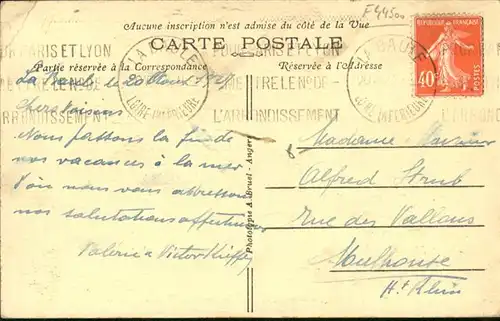 E4450
Aucune inscription n'est admise du côté de la Vue
CARTE POSTALE
Partie réservée à la Correspondance
Réservée à l'Adresse
PARIS ET LYON
METTRE LE No DE
L'ARRONDISSEMENT
LA BAULE
LOIRE INFERIEURE
REPUBLIQUE FRANÇAISE
40c
POSTES
La Baule le 20 Août 1927
Chers voisins
Nous passons la fin de
nos vacances à la mer
d'où nous vous adressons
nos salutations affectueuses
Valérie & Victor
Phototypie A. Bruel - Angers
Madame Monsieur
Alfred Strub
Rue des Vallons
Mulhouse
Ht Rhin